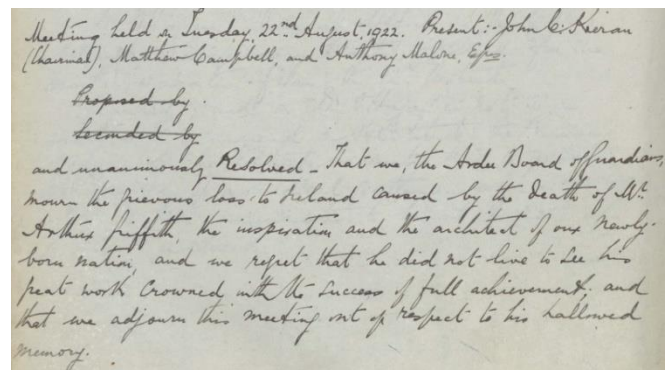 Meeting held on Tuesday, 22nd August, 1922. Present:- John C. Kieran
(Chairman), Matthew Campbell, and Anthony Malone, Eqrs.
Proposed by.
Seconded by
and unanimously Resolved - That we, the Ardee Board of Guardians,
mourn the grievous loss to Ireland caused by the death of Mr.
Arthur Griffith, the inspiration and the architect of our newly-
born nation, and we regret that he did not live to see his
great work crowned with the success of full achievement; and
that we adjourn this meeting out of respect to his hallowed
memory.